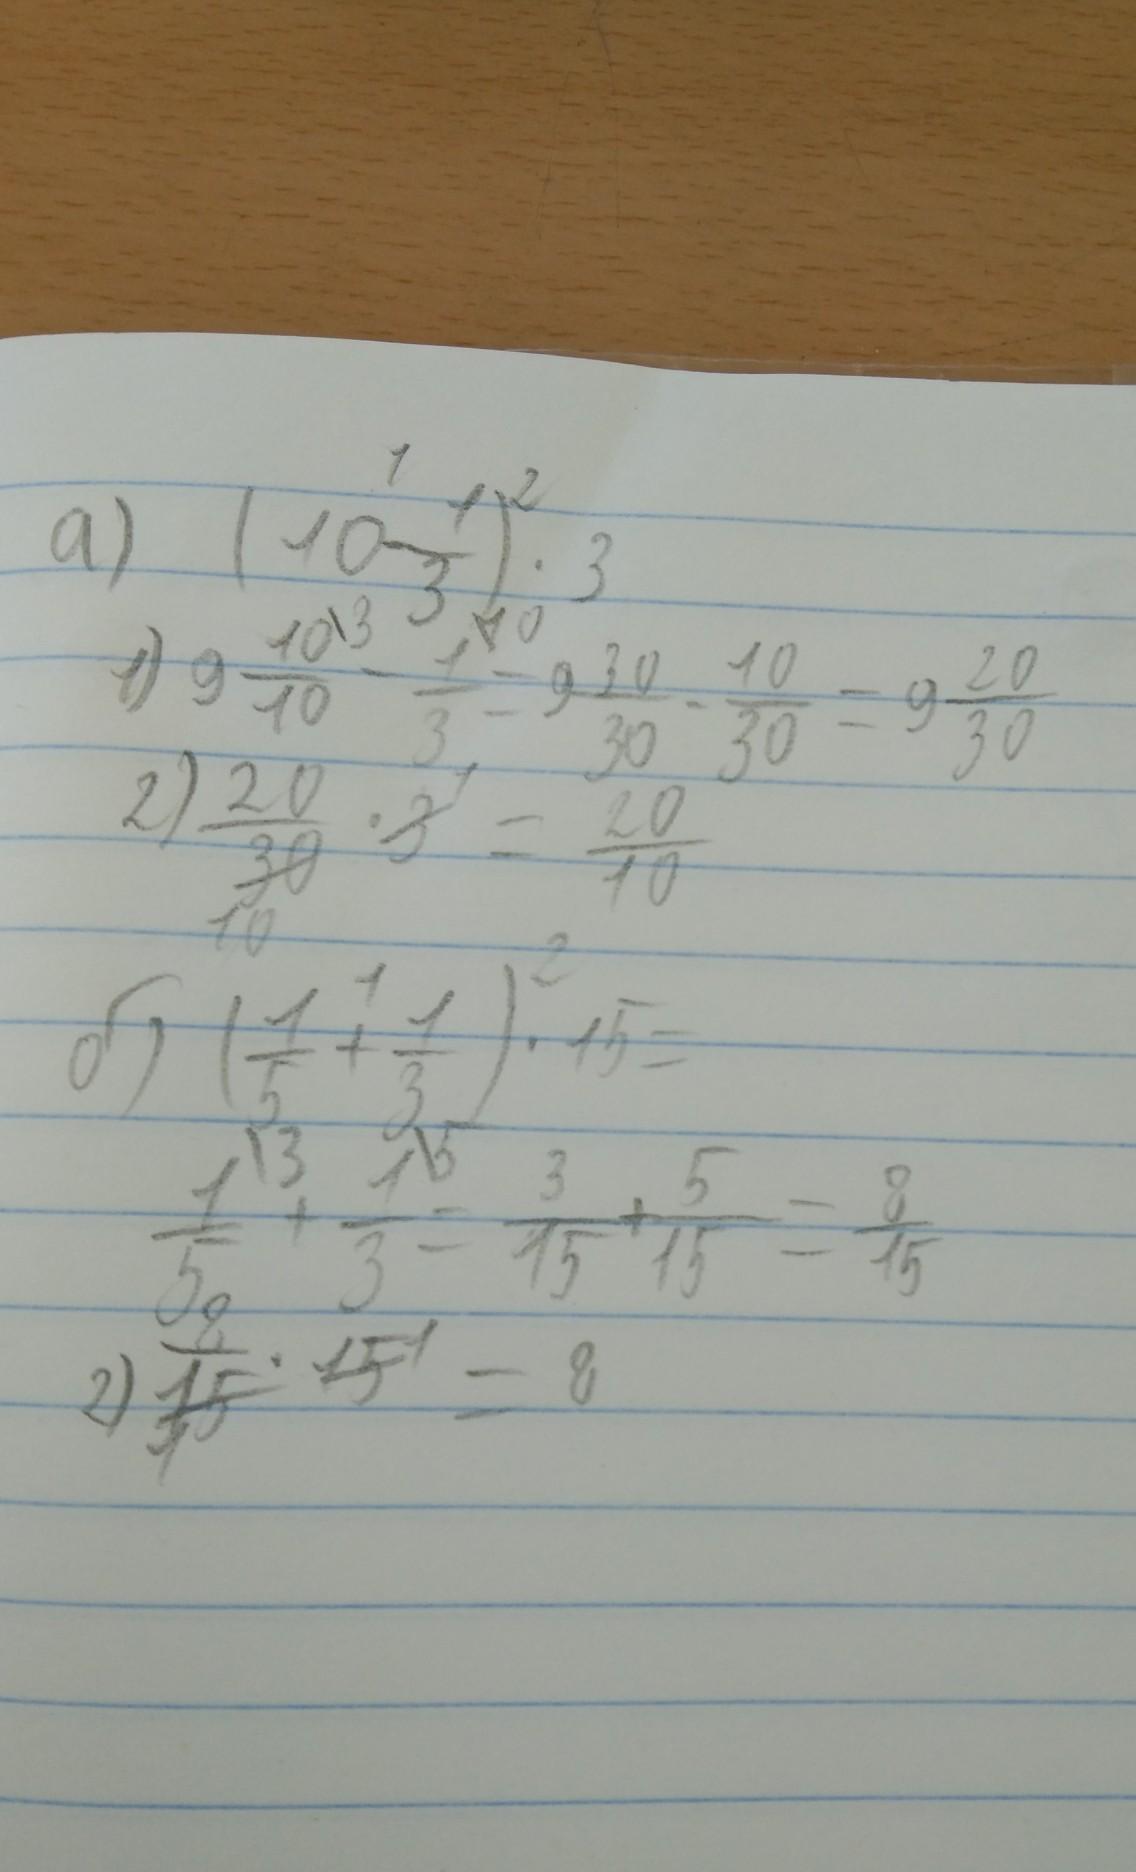 1 2
а) (10 - 1/3) · 3
1) 9 10/10\3 - 1/3\10 = 9 30/30 - 10/30 = 9 20/30
2) 20/30 · 3 1 = 20/10
10
1 2
б) (1/5 + 1/3) · 15 =
1/5\3 + 1/3\5 = 3/15 + 5/15 = 8/15
2) 8/15 · 15 1 = 8
1